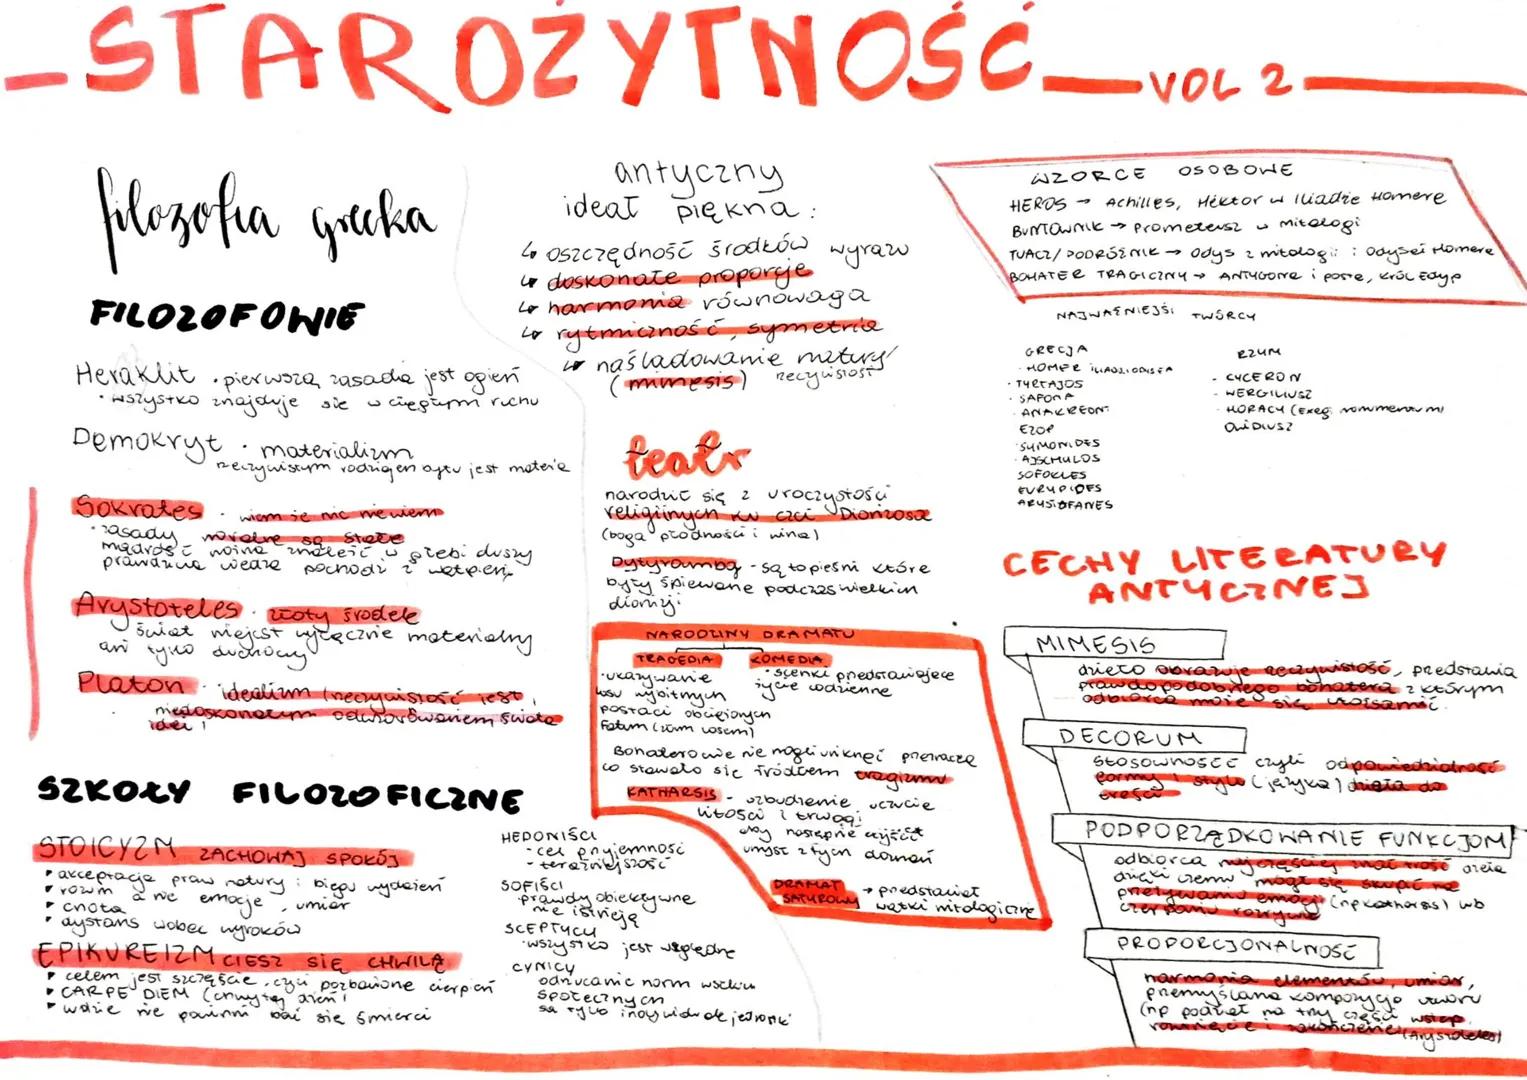 STAROŻYTNOŚĆ VOL 2
filozofia grecka
FILOZOFOWIE
Heraklit · pierwszą zasadą jest ogień
· wszystko znajduje się w ciągłym ruchu
Demokryt · materializm
rzeczywistym rodzajem bytu jest materia
Sokrates · wiem że nic nie wiem
· zasady moralne są stałe
mądrość można znaleźć w głębi duszy
prawdziwa wiedza pochodzi z wątpień
Arystoteles · złoty środek
świat niejest wyłącznie materialny
ani tylko duchowy
Platon · idealizm (rzeczywistość jest
niedoskonałym odwzorowaniem świata
idei)
SZKOŁY FILOZOFICZNE
STOICYZM ZACHOWAJ SPOKÓJ
akceptacja praw natury i biegu wydarzeń
rozum a nie emocje, umiar
cnota
dystans wobec wyroków
EPIKUREIZM CIESZ SIĘ CHWILĄ
celem jest szczęście, czyli pozbawione cierpień
CARPE DIEM (chwytaj dzień)
ludzie nie powinni bać się śmierci
HEDONIŚCI
- cel przyjemność
- teraźniejszość
SOFIŚCI
prawdy obiektywne
nie istnieją
SCEPTYCY
· wszystko jest względne
CYNICY
odrzucanie norm wszelkich
społecznych
są tylko indywidualne jednostki
antyczny
ideał piękna:
oszczędność środków wyrazu
doskonałe proporcje
harmonia równowaga
rytmiczność, symetria
naśladowanie natury/
(mimesis) rzeczywistość
teatr
narodził się z uroczystości
religijnych ku czci Dionizosa
(boga płodności i wina)
Dytyramby - są to pieśni które
były śpiewane podczas wielkich
dionizji
NARODZINY DRAMATU
TRAGEDIA KOMEDIA
· ukazywanie
losu wybitnych
postaci obciążonych
Fatum (złym losem)
· scenki przedstawiające
życie codzienne
Bohaterowie nie mogli uniknąć przeznaczenia
co stawało się źródłem tragizmu
KATHARSIS - wzbudzenie uczucie
litości i trwogi
aby następnie oczyścić
umysł z tych doznań
DRAMAT SATYROWY → przedstawiał
wątki mitologiczne
WZORCE OSOBOWE
HEROS → Achilles, Hektor w Iliadzie Homera
BUNTOWNIK → Prometeusz w mitologi
TUŁACZ/PODRÓŻNIK → Odys z mitologii i Odysei Homera
BOHATER TRAGICZNY → ANTYGONA i postać, Król Edyp
NAJWAŻNIEJSI TWÓRCY
GRECJA
· HOMER
· TYRTAJOS
· SAFONA
· ANAKREONT
EZOP
· SYMONIDES
· AJSCHYLOS
SOFOKLES
EURYPIDES
ARYSTOFANES
RZYM
· CYCERON
· WERGILIUSZ
· HORACY (Exegi monumentum)
OWIDIUSZ
CECHY LITERATURY
ANTYCZNEJ
MIMESIS
dzieło obrazuje rzeczywistość, przedstawia
prawdopodobnego bohatera z którym
odbiorca może się utożsamić.
DECORUM
stosowność czyli odpowiedzialność
formy i stylu (języka) dzieła do
treści
PODPORZĄDKOWANIE FUNKCJOM
odbiorca najczęściej znał treść dzieła
dzięki czemu mógł się skupić na
przeżywaniu emocji (np katharsis) lub
czerpaniu rozrywki
PROPORCJONALNOŚĆ
harmonia elementów, umiar,
przemyślana kompozycja utworu
(np podział na trzy części wstęp
rozwinięcie i zakończenie (Arystoteles)